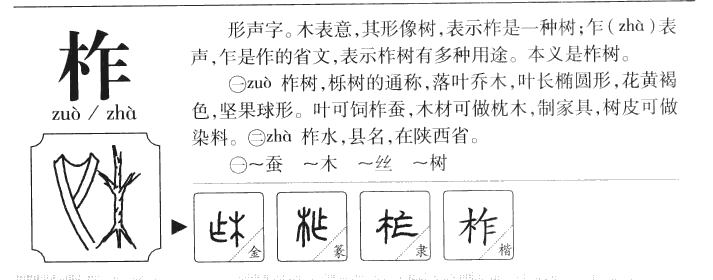 柞
zuò / zhà
形声字。木表意,其形像树,表示柞是一种树;乍(zhà)表
声,乍是作的省文,表示柞树有多种用途。本义是柞树。
㊀zuò 柞树,栎树的通称,落叶乔木,叶长椭圆形,花黄褐
色,坚果球形。叶可饲柞蚕,木材可做枕木,制家具,树皮可做
染料。㊁zhà 柞水,县名,在陕西省。
㊀～蚕 ～木 ～丝 ～树
金 篆 隶 柞 楷